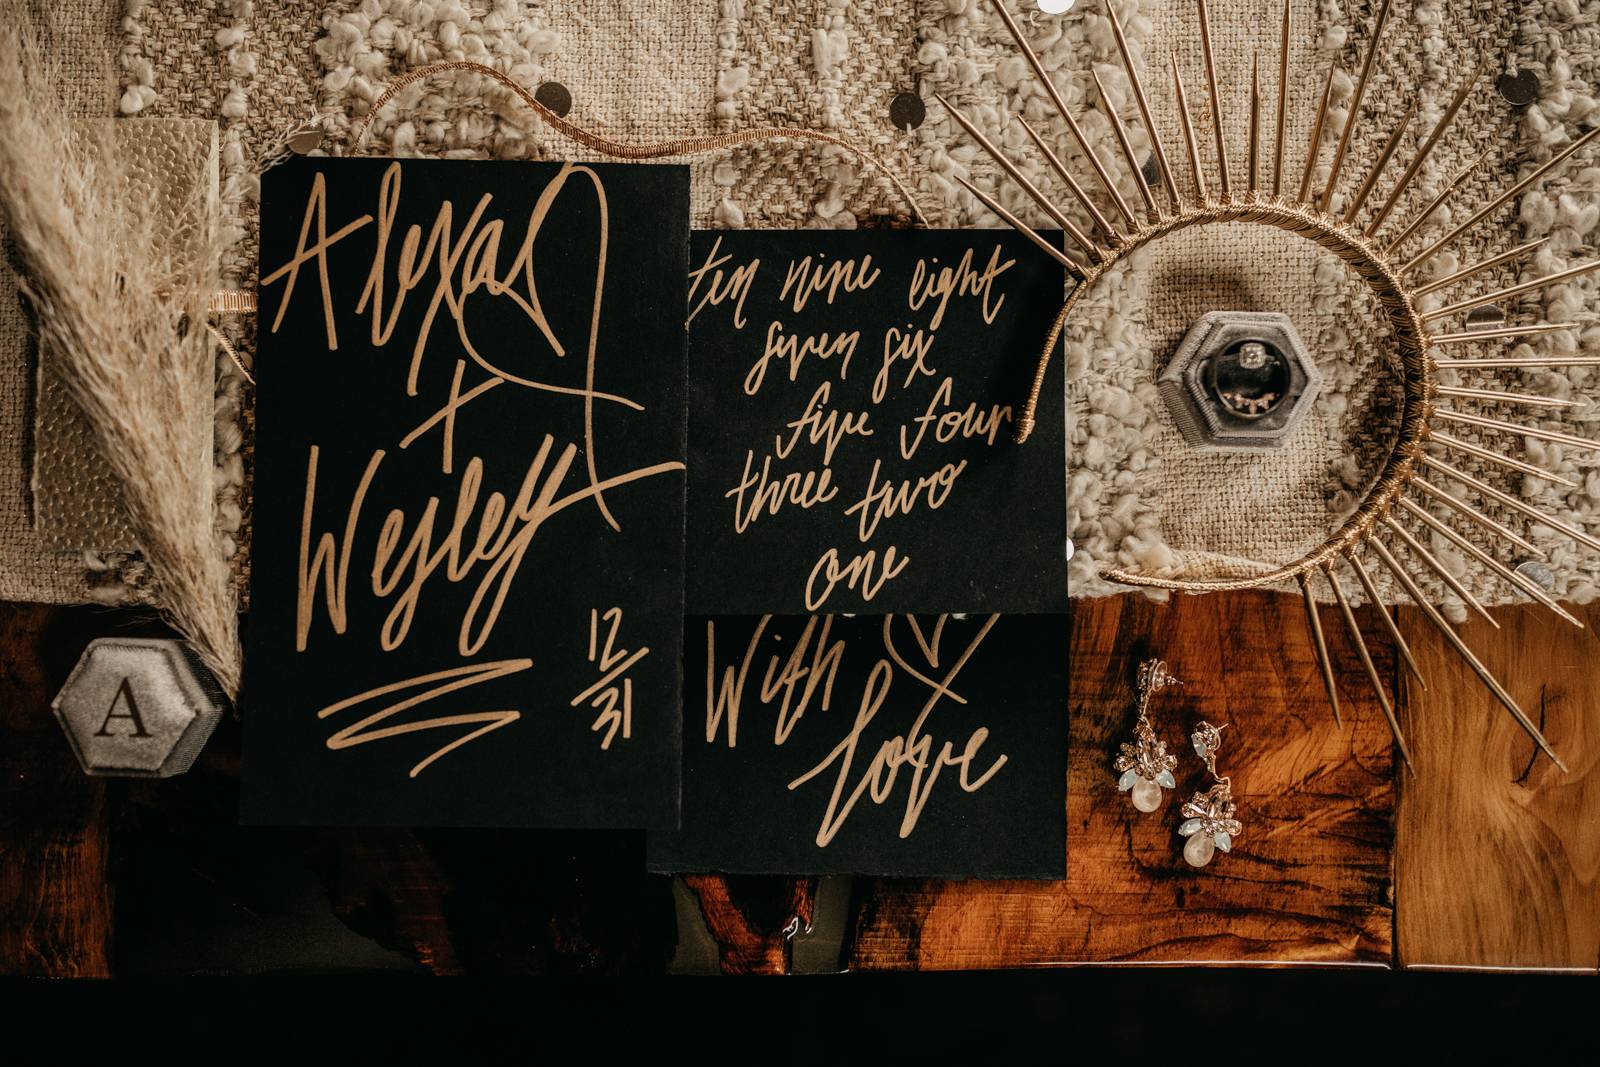 Alexa
+
Wesley
12/31
ten nine eight
seven six
five four
three two
one
With
Love
A